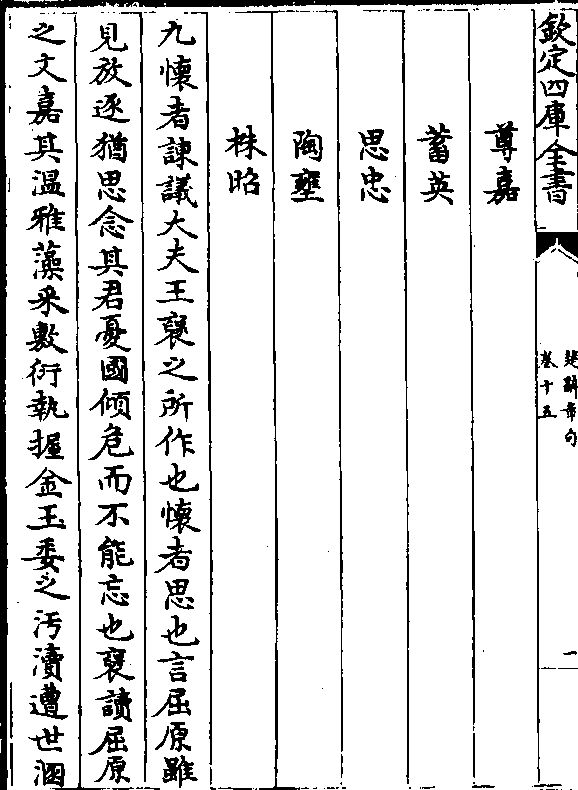 欽定四庫全書
楚辭章句
卷十五
一
尊嘉
蓄英
思忠
陶壅
株昭
九懷者諫議大夫王褒之所作也懷者思也言屈原雖
見放逐猶思念其君憂國傾危而不能忘也褒讀屈原
之文嘉其温雅藻采敷衍執握金玉委之汚瀆遭世溷